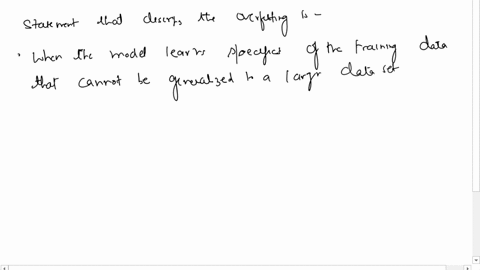 Statement that descrips the overfitting is -
. When the model learns specifics of the training data
that cannot be generalized to a large data set